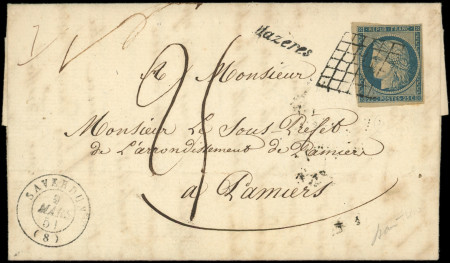 REPUB. FRANC.
Mazères
A Monsieur
Monsieur Le Sous Préfet
de L'arrondissement de Pamier
a Pamiers
25
SAVERDUN
MARS
51
(8)